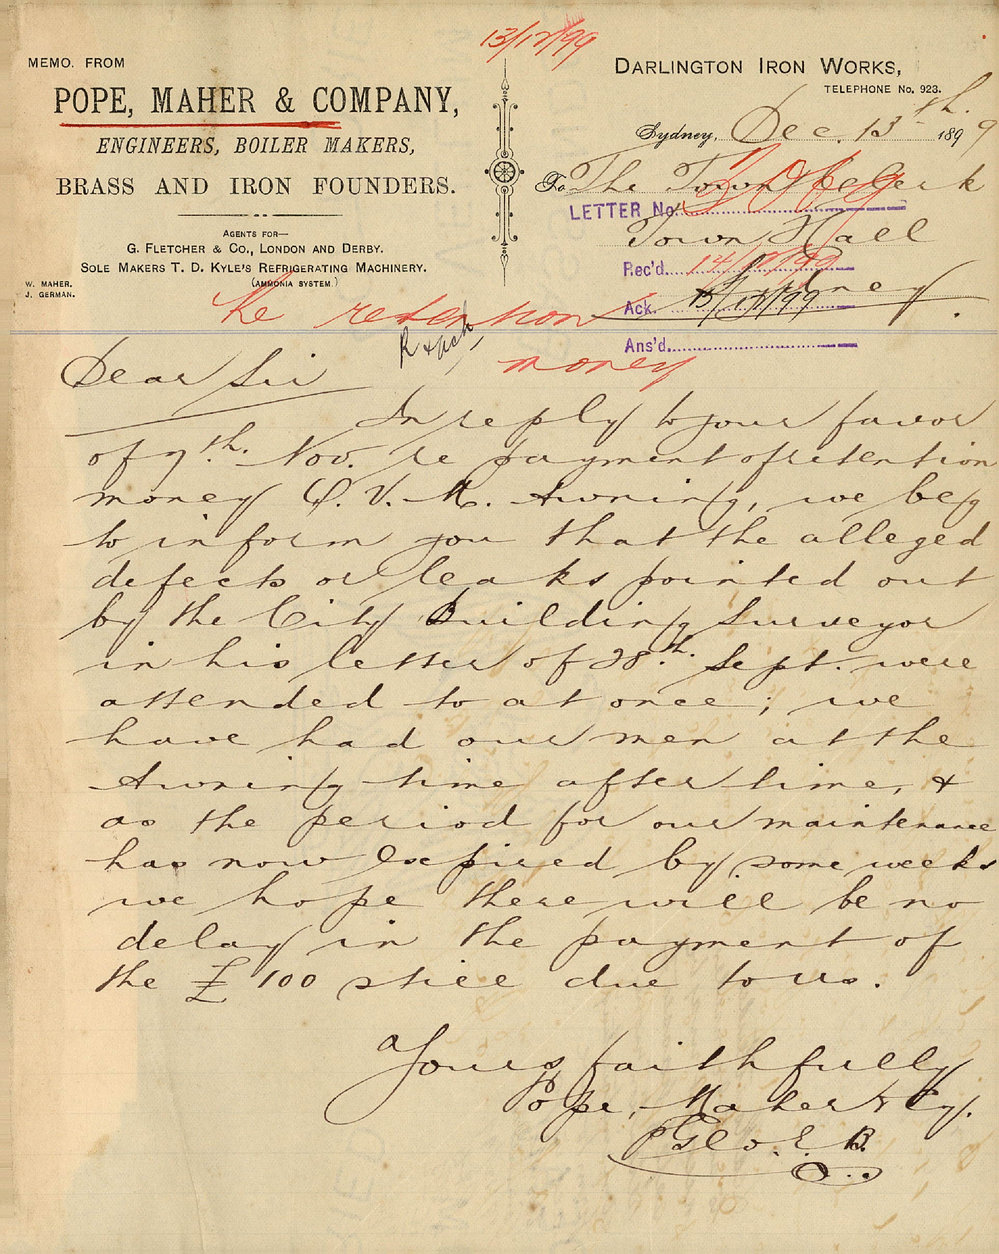 13/12/99
MEMO. FROM
POPE, MAHER & COMPANY,
ENGINEERS, BOILER MAKERS,
BRASS AND IRON FOUNDERS.
AGENTS FOR—
G. FLETCHER & CO., LONDON AND DERBY.
SOLE MAKERS T. D. KYLE'S REFRIGERATING MACHINERY.
(AMMONIA SYSTEM.)
W. MAHER.
J. GERMAN.
DARLINGTON IRON WORKS,
TELEPHONE No. 923.
Sydney, Dec. 13th. 1899
To The Town Clerk
LETTER No.
Town Hall
Rec'd. 14/12/99
Sydney.
Ack. 15/12/99
Ans'd.
he retention
money
Dear Sir
In reply to your favor
of 7th. Nov. re payment of retention
money Q. V. M. Awning, we beg
to inform you that the alleged
defects or leaks pointed out
by the City Building Surveyor
in his letter of 28th. Sept. were
attended to at once; we
have had our men at the
Awning time after time, &
as the period for our maintenance
has now expired by some weeks
we hope there will be no
delay in the payment of
the £100 still due to us.
Yours faithfully
Pope, Maher & Cy.